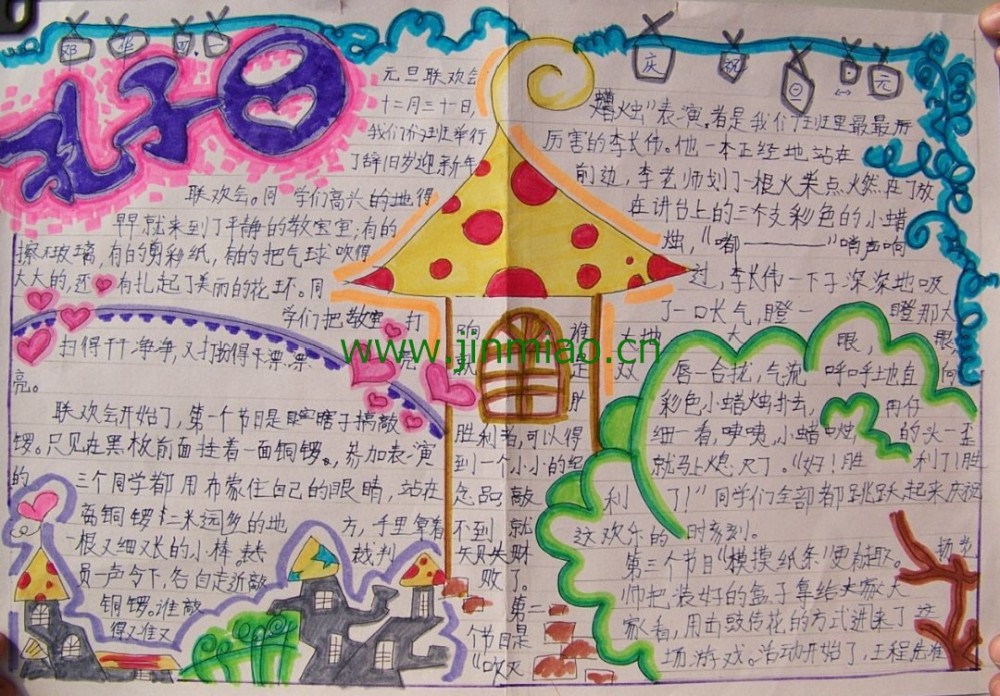 孔子日
邓 华 四.一
庆 祝 元 旦
元旦联欢会
十二月三十一日,
我们们班举行
了辞旧岁迎新年
联欢会。同学们高兴的地得
早早就来到了平静的教室室;有的
擦玻璃,有的剪彩纸,有的把气球吹得
大大的,还有扎起了美丽的花环。同
学们把教室打
扫得干干净净,又打扮得漂漂亮
亮。
联欢会开始了,第一个节目是瞎子摘敲
锣。只见在黑板前面挂着一面铜锣。参加表演
的三个同学都用布蒙住自己的眼睛,站在
离铜锣二米远的地方,手里拿着
一根又细又长的小棒。裁判
员一声令下,各自走近敲
铜锣。谁敲
得又准又
胜利者,可以得
到一个小小的纪
念品敲
不到就
失败
了。
第二
个节目是
“吹灭
蜡烛”表演。看是我们班里最最历
厉害的李长伟。他一本正经地站在
前边,李老师划了一根火柴点火然再了放
在讲台上的三个支彩色的小蜡
烛,“嘟————”哨声响
过,李长伟一下子深深地吸
了一口长气,瞪一瞪那大
大眼,眼
双唇一合拢,气流呼呼地直向
彩色小蜡烛扑去,仔
细一看,咦咦,小蜡烛的头一歪
就马上熄灭了。“好!胜利了!胜
利了!”同学们全部都跳跃起来庆祝
这欢乐的时刻刻。
第三个节目“摸摸纸条”更有趣。杨老
师把装好的盒子拿给大家大
家看,用击鼓传花的方式进来了这
场游戏。活动开始了,王程先准
www.jinmiao.cn